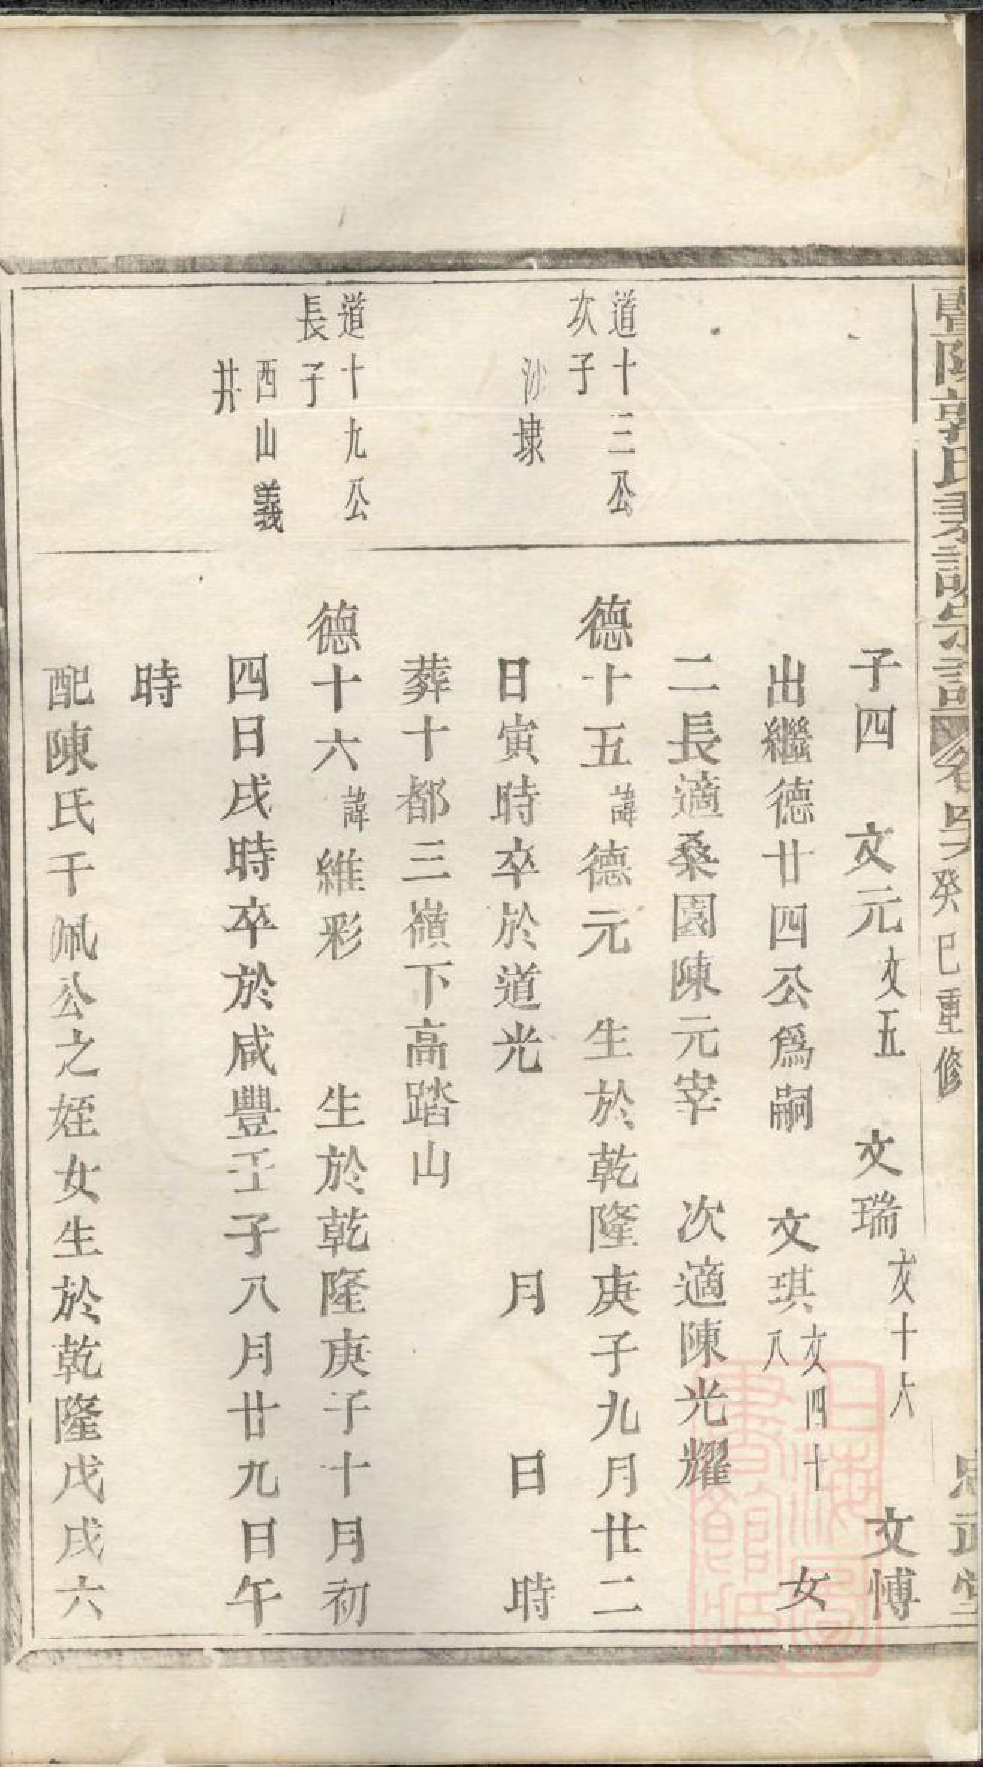 暨陽郭氏素譜宗譜 卷四六 癸巳重修 忠武堂
子四 文元文五 文瑞文十六 文博
出繼德廿四公爲嗣 文琪文四十八 女
二長適桑園陳元宰 次適陳光耀
道十三公次子
德十五諱德元 生於乾隆庚子九月廿二
沙埭
日寅時卒於道光 月 日 時
葬十都三嶺下高踏山
道十九公長子
德十六諱維彩 生於乾隆庚子十月初
西山義井
四日戌時卒於咸豐壬子八月廿九日午
時
配陳氏干佩公之姪女生於乾隆戊戌六